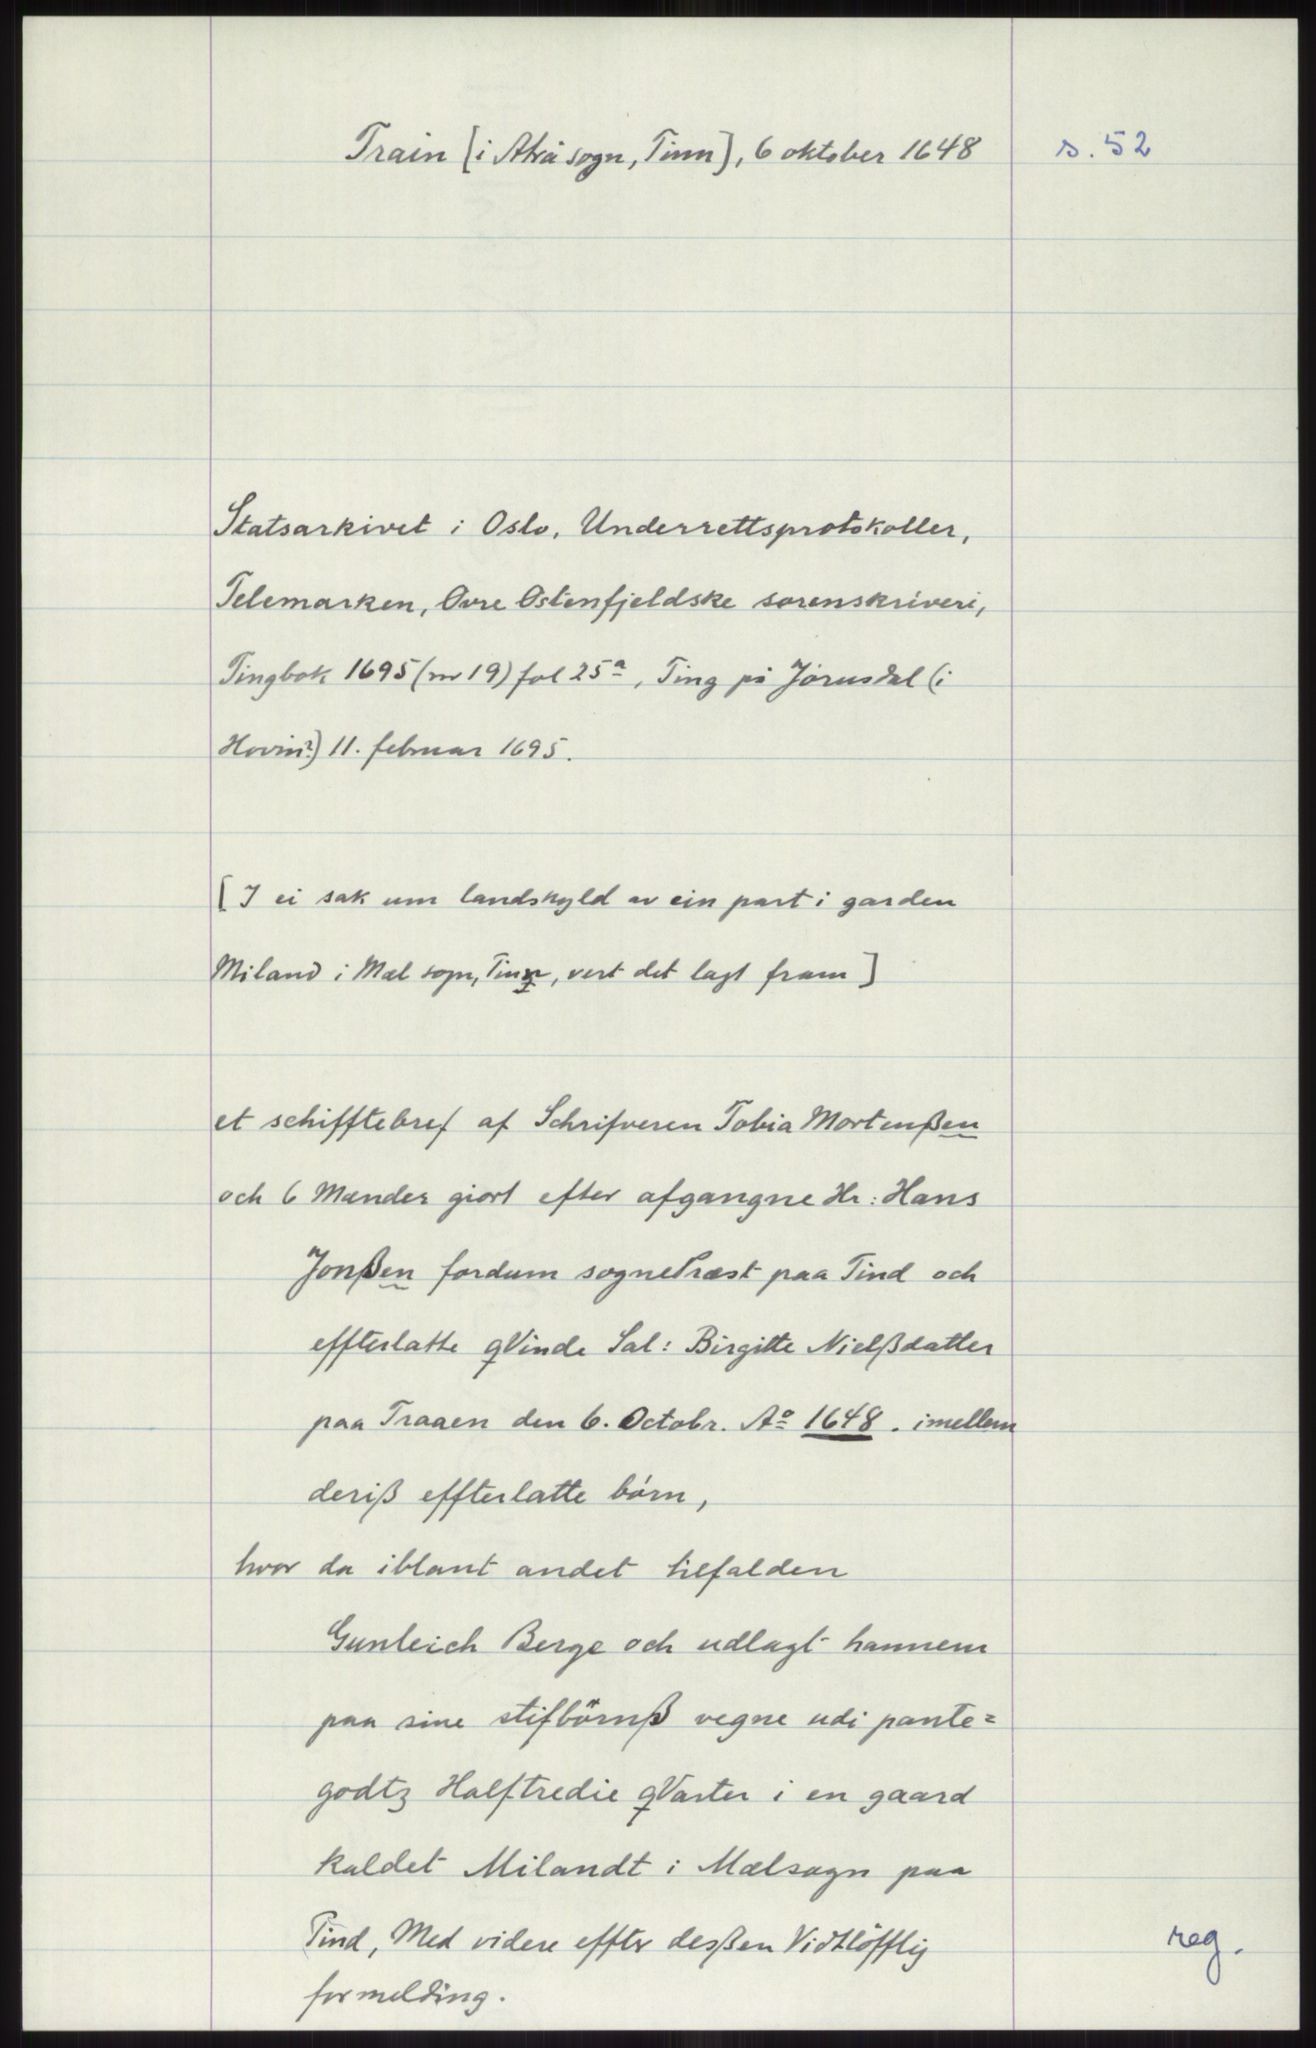 Train [i Atrå sogn, Tinn], 6 oktober 1648
s. 52
Statsarkivet i Oslo, Underrettsprotokoller,
Telemarken, Øvre Østenfjeldske sorenskriveri,
Tingbok 1695 (nr 19) fol 25ª, Ting på Jørusdal (i
Hovin?) 11. februar 1695.
[I ei sak um landskyld av ein part i garden
Miland i Mæl sogn, Tinn, vert det lagt fram]
et schifftebref af Schrifveren Tobia Mortenßen
och 6 Mænder giort efter afgangne Hr: Hans
Jonßen fordum sognePræst paa Tind och
effterlatte qVinde Sal: Birgitte Nielßdatter
paa Traaen den 6. Octobr. Aº 1648. imellem
deriß effterlatte børn,
hvor da iblant andet tilfalden
Gunleich Berge och udlagt hannem
paa sine stifbörnß vegne udi pante=
godtz Halftredie qVarter i en gaard
kaldet Milandt i Mælsogn paa
Tind, Med videre effter desßen Vidtlöfftig
formelding.
reg.